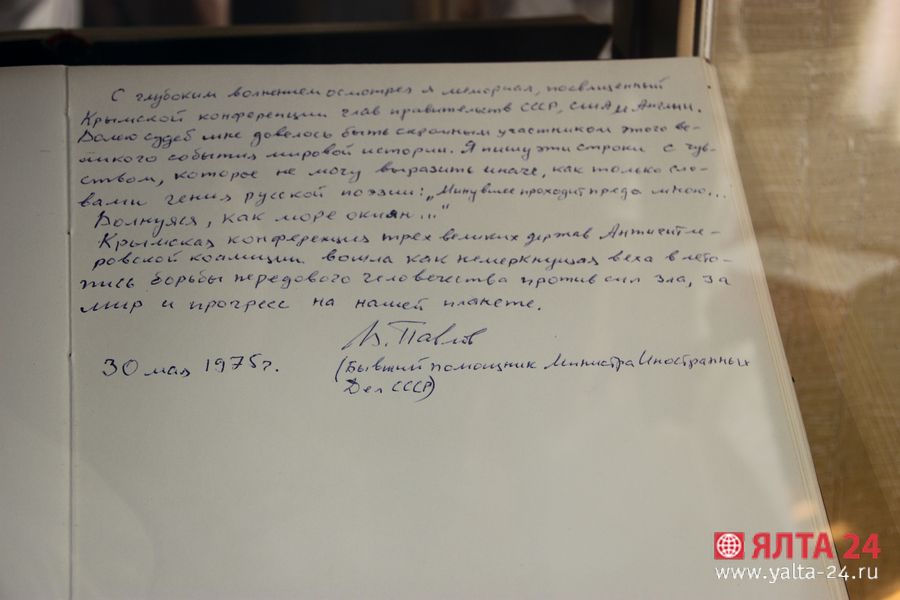 С глубоким волнением осмотрел я мемориал, посвященный
Крымской конференции глав правительств СССР, США и Англии.
Волею судеб мне довелось быть скромным участником этого ве-
ликого события мировой истории. Я пишу эти строки с чув-
ством, которое не могу выразить иначе, как только сло-
вами гения русской поэзии: „Минувшее проходит предо мною...
Волнуяся, как море окиян..."
Крымская конференция трех великих держав Антигитле-
ровской коалиции вошла как немеркнущая веха в лето-
пись борьбы передового человечества против сил зла, за
мир и прогресс на нашей планете.
В. Павлов
30 мая 1975 г.
(Бывший помощник Министра Иностранных
Дел СССР)
ЯЛТА 24
www.yalta-24.ru